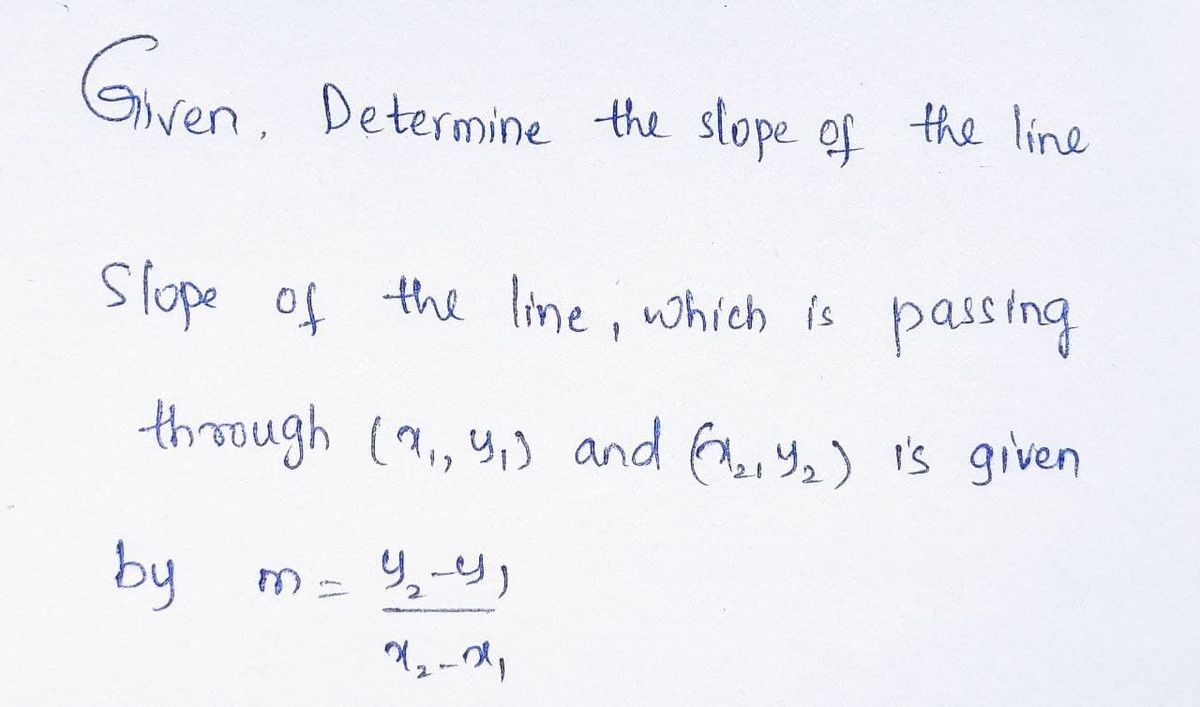 Given, Determine the slope of the line
Slope of the line, which is passing
through (x₁, y₁) and (x₂, y₂) is given
by m = y₂-y₁
x₂-x₁